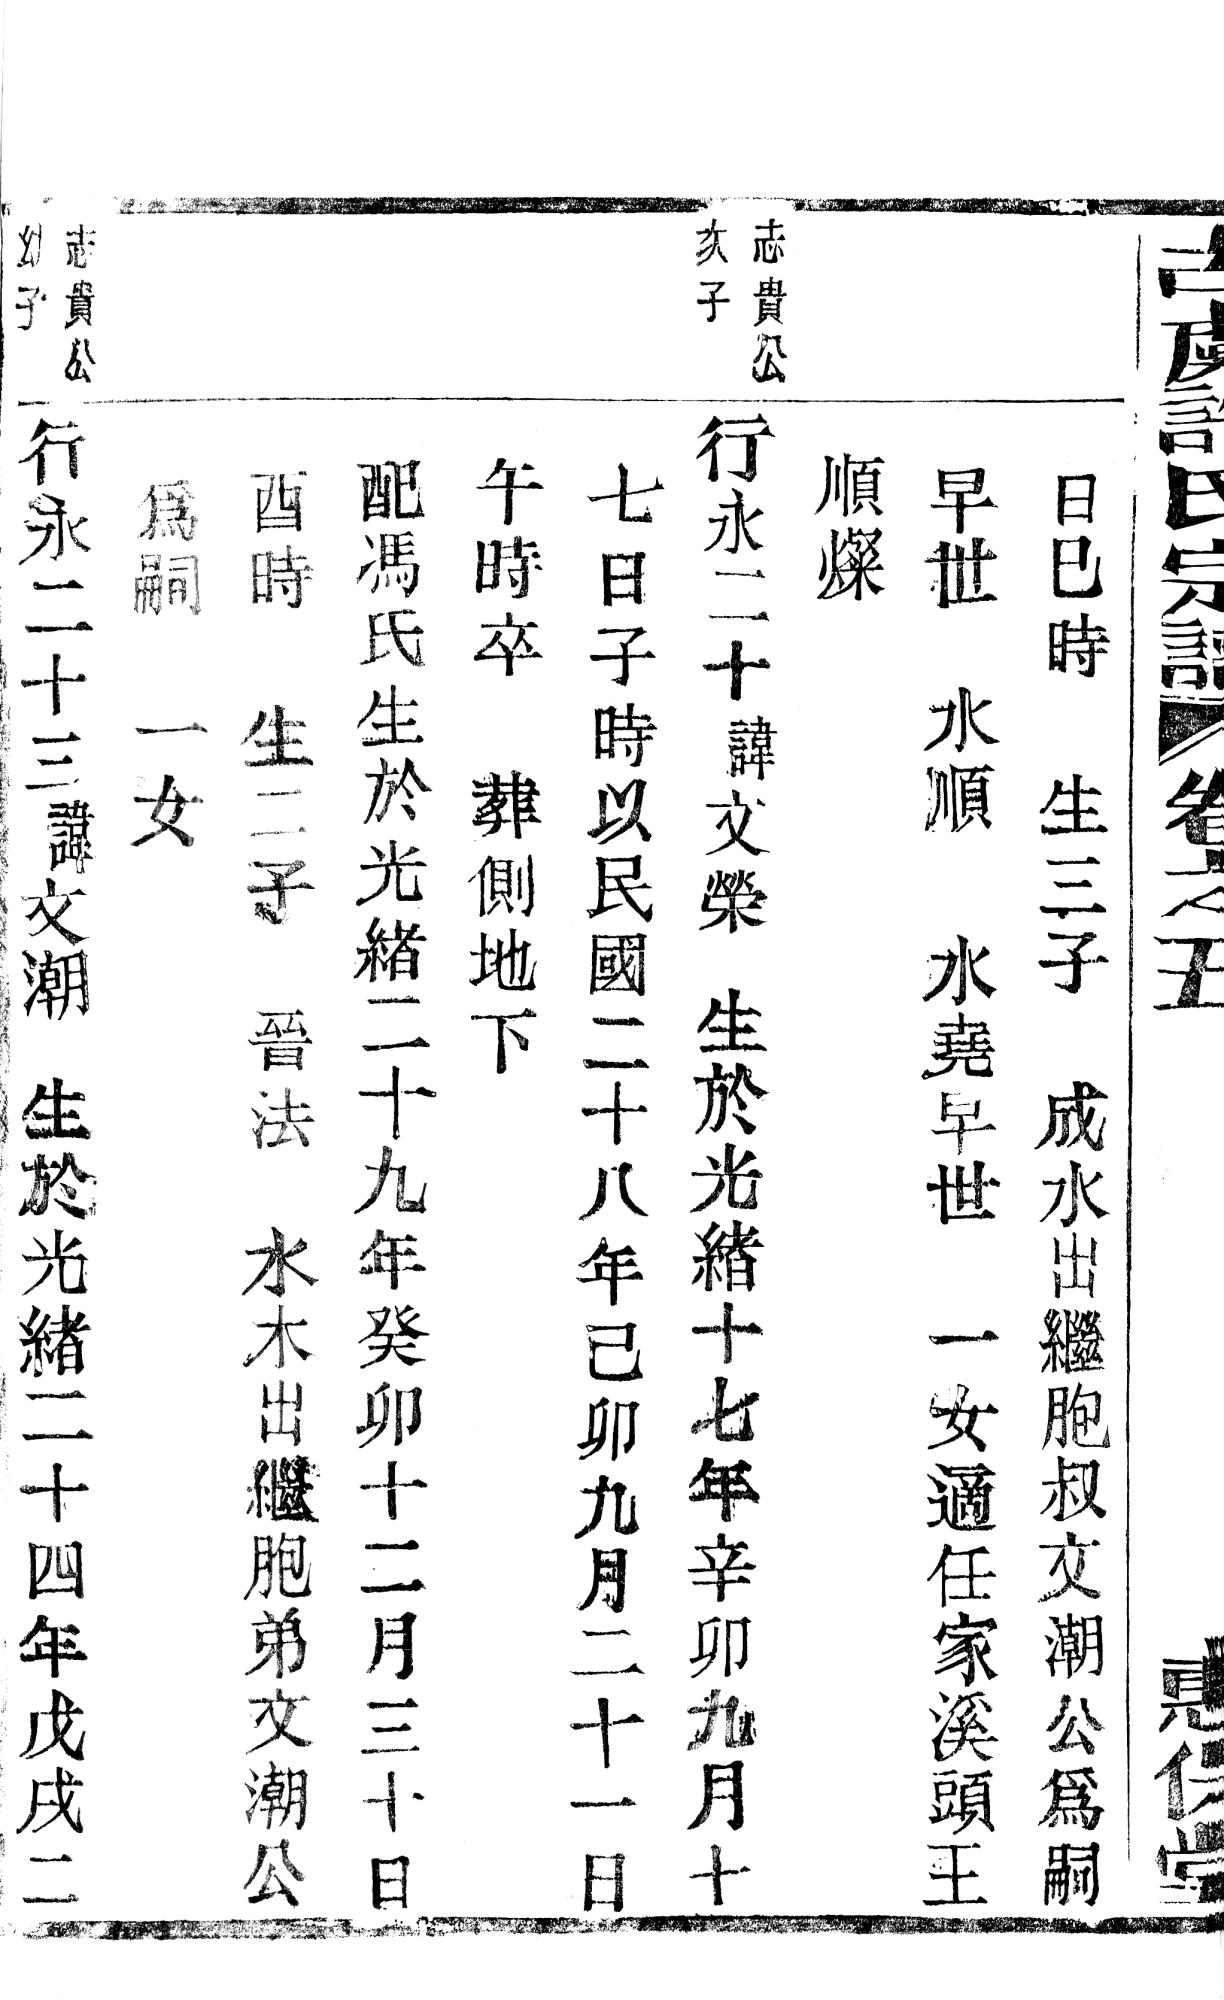 古虞許氏宗譜 卷之五 惠保堂
日巳時 生三子 成水出繼胞叔文潮公爲嗣
早世 水順 水堯早世 一女適任家溪頭王
順燦
志貴公
次子
行永二十諱文榮 生於光緒十七年辛卯九月十
七日子時以民國二十八年己卯九月二十一日
午時卒 葬側地下
配馮氏生於光緒二十九年癸卯十二月三十日
酉時 生二子 晉法 水木出繼胞弟文潮公
爲嗣 一女
志貴公
幼子
行永二十三諱文潮 生於光緒二十四年戊戌二